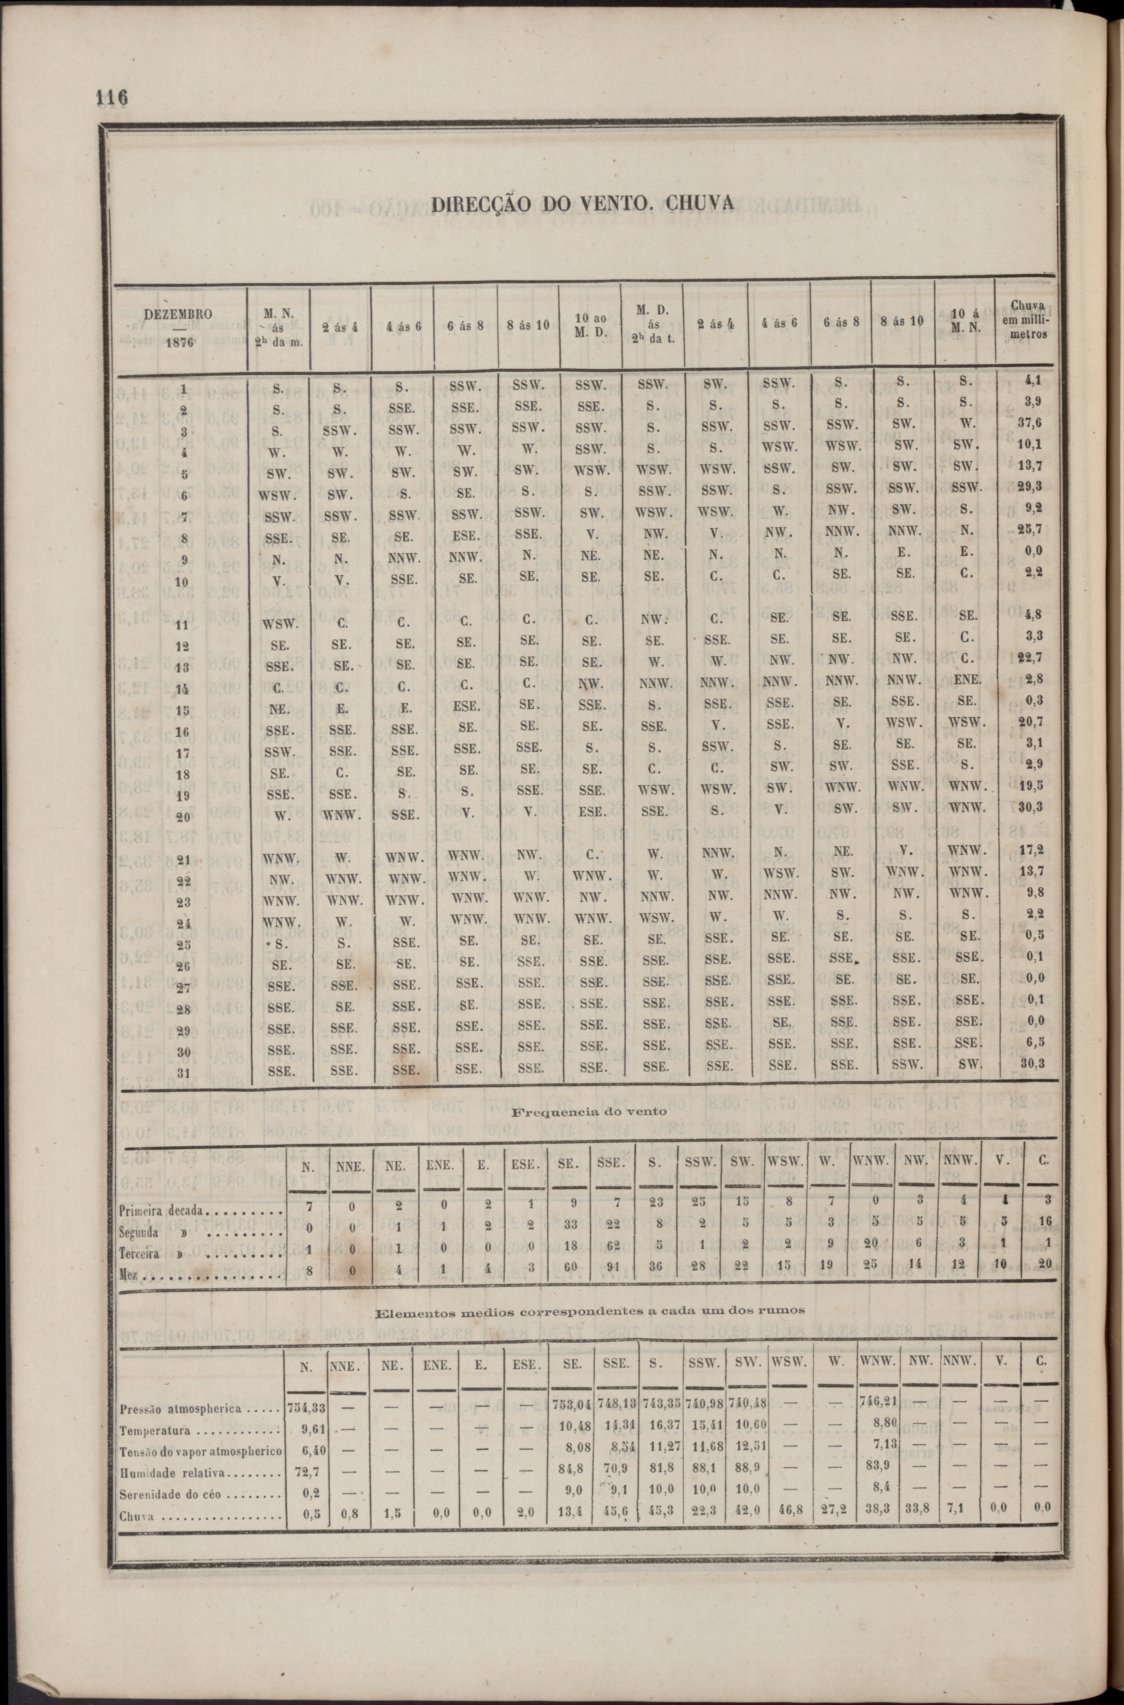 116
DIRECÇÃO DO VENTO. CHUVA
DEZEMBRO — 1876 | M. N. ás 2h da m. | 2 ás 4 | 4 ás 6 | 6 ás 8 | 8 ás 10 | 10 ao M. D. | M. D. ás 2h da t. | 2 ás 4 | 4 ás 6 | 6 ás 8 | 8 ás 10 | 10 á M. N. | Chuva em milli-metros
1 S. S. S. SSW. SSW. SSW. SSW. SW. SSW. S. S. S. 4,1
2 S. S. SSE. SSE. SSE. SSE. S. S. S. S. S. S. 3,9
3 S. SSW. SSW. SSW. SSW. SSW. S. SSW. SSW. SSW. SW. W. 37,6
4 W. W. W. W. W. SSW. S. S. WSW. WSW. SW. SW. 10,1
5 SW. SW. SW. SW. SW. WSW. WSW. WSW. SSW. SW. SW. SW. 13,7
6 WSW. SW. S. SE. S. S. SSW. SSW. S. SSW. SSW. SSW. 29,3
7 SSW. SSW. SSW. SSW. SSW. SW. WSW. WSW. W. NW. SW. S. 9,2
8 SSE. SE. SE. ESE. SSE. V. NW. V. NW. NNW. NNW. N. 25,7
9 N. N. NNW. NNW. N. NE. NE. N. N. N. E. E. 0,0
10 V. V. SSE. SE. SE. SE. SE. C. C. SE. SE. C. 2,2
11 WSW. C. C. C. C. C. NW. C. SE. SE. SSE. SE. 4,8
12 SE. SE. SE. SE. SE. SE. SE. SSE. SE. SE. SE. C. 3,3
13 SSE. SE. SE. SE. SE. SE. W. W. NW. NW. NW. C. 22,7
14 C. C. C. C. C. NW. NNW. NNW. NNW. NNW. NNW. ENE. 2,8
15 NE. E. E. ESE. SE. SSE. S. SSE. SSE. SE. SSE. SE. 0,3
16 SSE. SSE. SSE. SE. SE. SE. SSE. V. SSE. V. WSW. WSW. 20,7
17 SSW. SSE. SSE. SSE. SSE. S. S. SSW. S. SE. SE. SE. 3,1
18 SE. C. SE. SE. SE. SE. C. C. SW. SW. SSE. S. 2,9
19 SSE. SSE. S. S. SSE. SSE. WSW. WSW. SW. WNW. WNW. WNW. 19,5
20 W. WNW. SSE. V. V. ESE. SSE. S. V. SW. SW. WNW. 30,3
21 WNW. W. WNW. WNW. NW. C. W. NNW. N. NE. V. WNW. 17,2
22 NW. WNW. WNW. WNW. W. WNW. W. W. WSW. SW. WNW. WNW. 13,7
23 WNW. WNW. WNW. WNW. WNW. NW. NNW. NW. NNW. NW. NW. WNW. 9,8
24 WNW. W. W. WNW. WNW. WNW. WSW. W. W. S. S. S. 2,2
25 S. S. SSE. SE. SE. SE. SE. SSE. SE. SE. SE. SE. 0,5
26 SE. SE. SE. SE. SSE. SSE. SSE. SSE. SSE. SSE. SSE. SSE. 0,1
27 SSE. SSE. SSE. SSE. SSE. SSE. SSE. SSE. SSE. SE. SE. SE. 0,0
28 SSE. SE. SSE. SE. SSE. SSE. SSE. SSE. SSE. SSE. SSE. SSE. 0,1
29 SSE. SSE. SSE. SSE. SSE. SSE. SSE. SSE. SE. SSE. SSE. SSE. 0,0
30 SSE. SSE. SSE. SSE. SSE. SSE. SSE. SSE. SSE. SSE. SSE. SSE. 6,5
31 SSE. SSE. SSE. SSE. SSE. SSE. SSE. SSE. SSE. SSE. SSW. SW. 30,3
Frequencia do vento
N. NNE. NE. ENE. E. ESE. SE. SSE. S. SSW. SW. WSW. W. WNW. NW. NNW. V. C.
Primeira decada......... 7 0 2 0 2 1 9 7 23 25 15 8 7 0 3 4 4 3
Segunda » ......... 0 0 1 1 2 2 33 22 8 2 5 5 3 5 5 5 5 16
Terceira » ......... 1 0 1 0 0 0 18 62 5 1 2 2 9 20 6 3 1 1
Mez................ 8 0 4 1 4 3 60 91 36 28 22 15 19 25 14 12 10 20
Elementos medios correspondentes a cada um dos rumos
N. NNE. NE. ENE. E. ESE. SE. SSE. S. SSW. SW. WSW. W. WNW. NW. NNW. V. C.
Pressão atmospherica ..... 754,33 — — — — — 753,04 748,13 743,35 740,98 740,48 — — 746,21 — — — —
Temperatura ............ 9,61 — — — — — 10,48 14,31 16,37 15,41 10,60 — — 8,80 — — — —
Tensão do vapor atmospherico 6,40 — — — — — 8,08 8,54 11,27 11,68 12,51 — — 7,13 — — — —
Humidade relativa........ 72,7 — — — — — 84,8 70,9 81,8 88,1 88,9 — — 83,9 — — — —
Serenidade do céo ........ 0,2 — — — — — 9,0 9,1 10,0 10,0 10,0 — — 8,4 — — — —
Chuva ................. 0,5 0,8 1,5 0,0 0,0 2,0 13,4 45,6 45,3 22,3 42,0 46,8 27,2 38,3 33,8 7,1 0,0 0,0